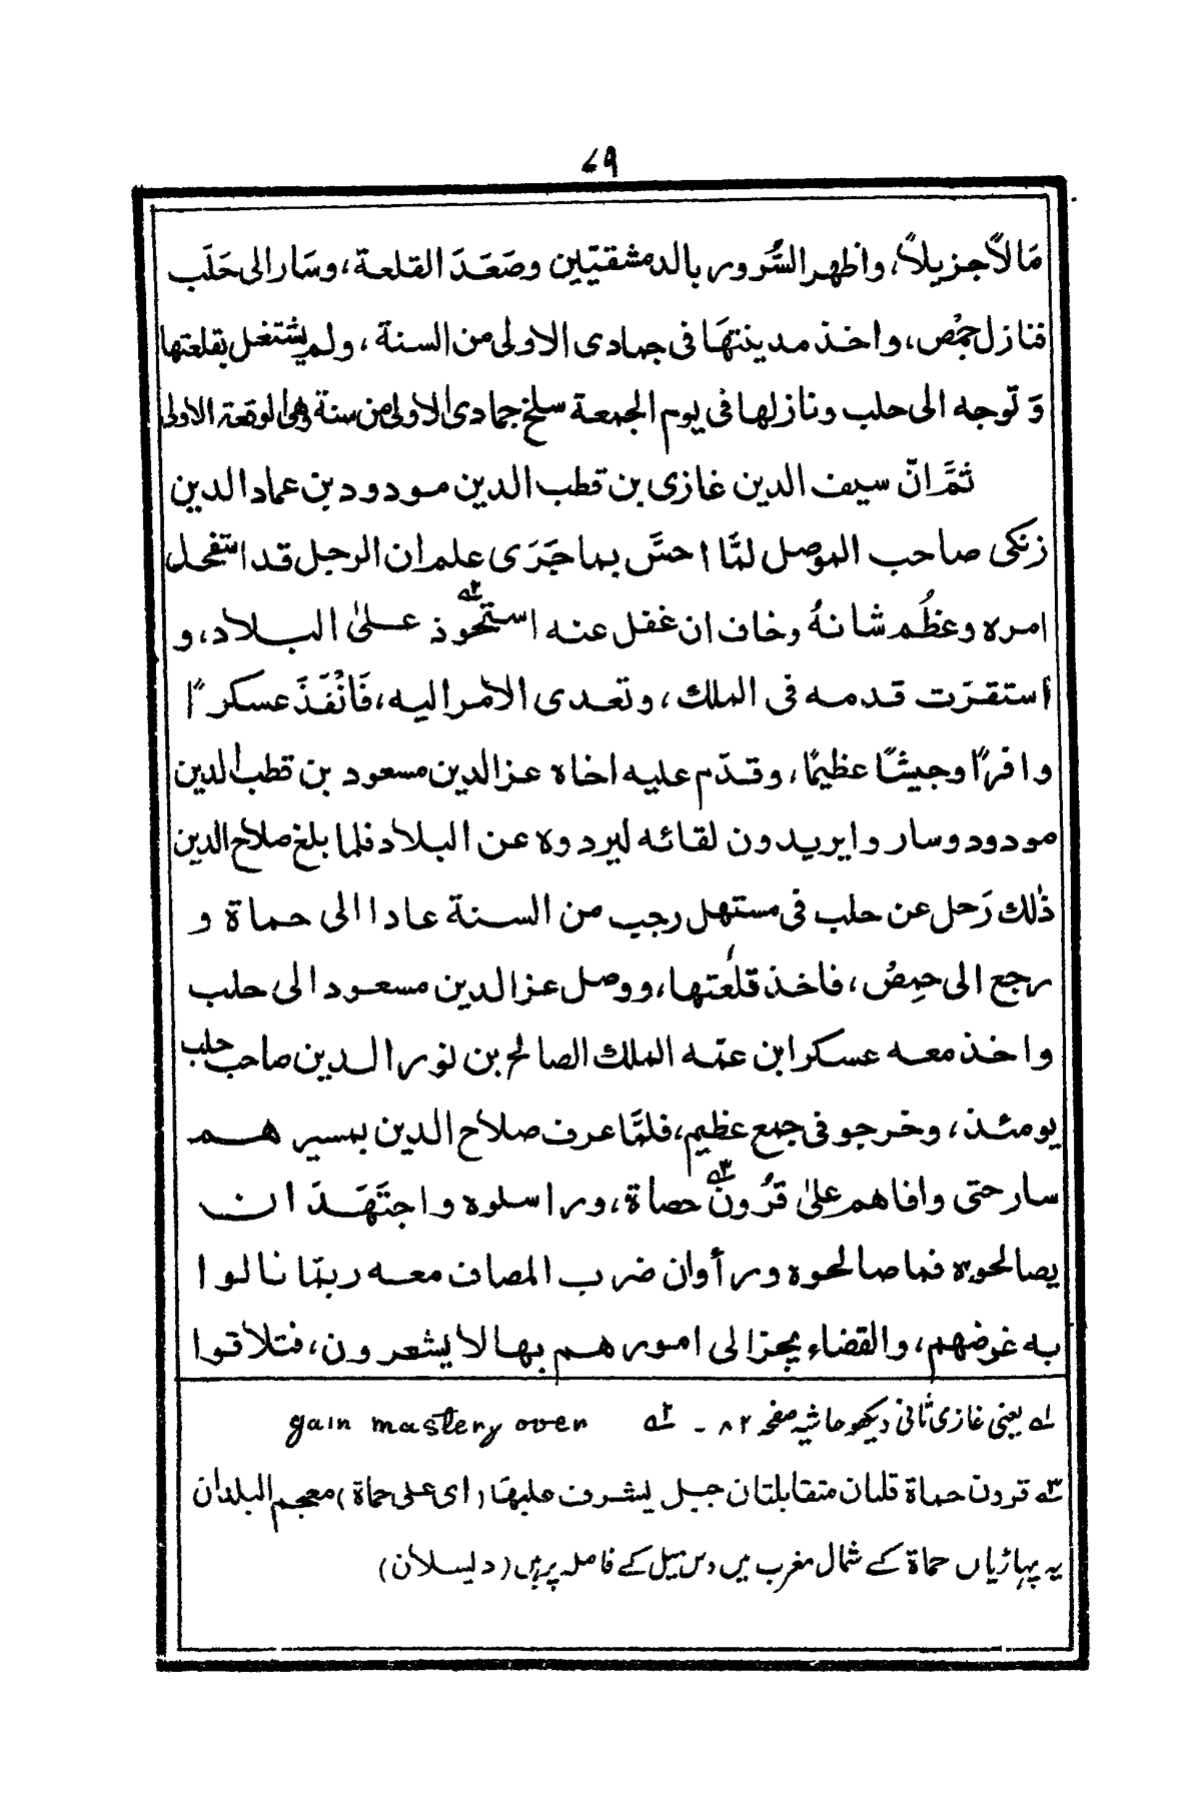 ۷۹
مَالًا جزيلًا، واظهر السُّرور بالدمشقيّين وصَعَدَ القلعة، وسَار الى حَلَب
فنازل حِمْص، واخذ مدينتهَا فى جمادى الاولى من السنة، ولم يشتغل بقلعتها
وَ توجه الى حلب ونازلها فى يوم الجمعة سلخ جمادى الاولى من سنة وهى الوقعة الاولى
ثمَّ انّ سيف الدين غازى بن قطب الدين مودود بن عماد الدين
زنكى صاحب الموصل لمَّا احسَّ بما جَرَى علم ان الرجل قد استفحل
امره وعظُم شانهُ وخاف ان غفل عنه استحوذ ۲ه علىٰ البلاد، و
استقرت قدمه فى الملك، وتعدى الأمر اليه، فَانْفَذَ عسكرًا
وافرًا وجيشًا عظيمًا، وقدّم عليه اخاه عز الدين مسعود بن قطب الدين
مودود وسار وايريدون لقائه ليردوه عن البلاد فلما بلغ صلاح الدين
ذٰلك رَحل عن حلب فى مستهل رجب من السنة عادا الى حماة و
رجع الى حِمصُ، فاخذ قلعُتها، ووصل عز الدين مسعود الى حلب
واخذ معه عسكر ابن عمّه الملك الصالح بن نور الدين صاحب حلب
يومئذ، وخرجو فى جمع عظيم، فلمَّا عرف صلاح الدين بمسيرهم
سار حتى وافاهم علىٰ قرُون ۳ه حماة، وراسلوه واجتَهَدَ ان
يصالحوه فما صالحوه ورأوان ضرب المصاف معه ربمّا نالوا
به غرضهم، والقضاء يجرّ الى امورهم بها لا يشعرون، فتلاقوا
۱ه یعنی غازی ثانی دیکھو حاشیہ صفحہ ۸۲ - ۲ه gain mastery over
۳ه قرون حماة قلتان متقابلتان جبل يشرف عليها (اى على حماة) معجم البلدان
یہ پہاڑیاں حماة کے شمال مغرب میں دس میل کے فاصلہ پر ہیں (دلیسلان)